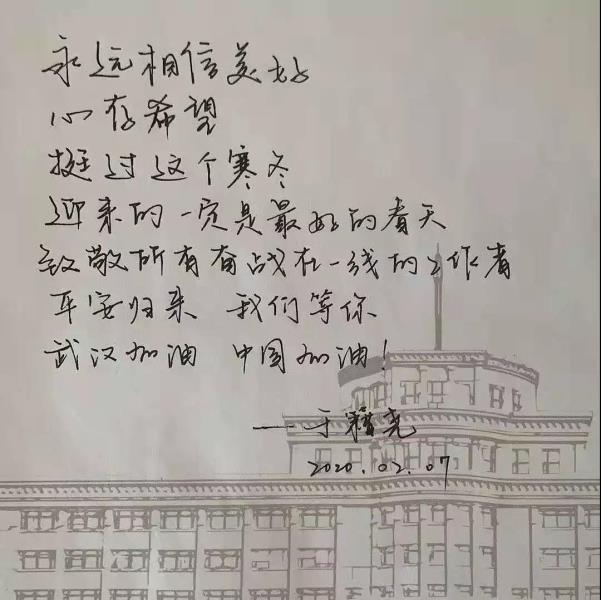 永远相信美好
心存希望
挺过这个寒冬
迎来的一定是最好的春天
致敬所有奋战在一线的工作者
平安归来 我们等你
武汉加油 中国加油!
——于籍尧
2020.02.07